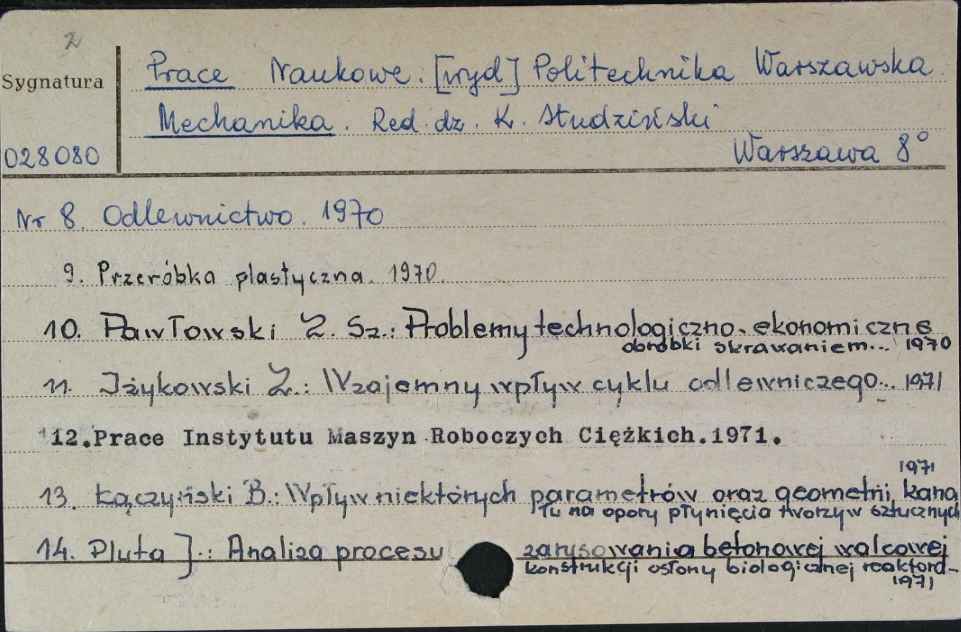 2
Sygnatura
028080
Prace Naukowe. [wyd] Politechnika Warszawska.
Mechanika. Red. dz. K. Studziński
Warszawa 8°
Nr 8. Odlewnictwo. 1970
9. Przeróbka plastyczna. 1970.
10. Pawłowski Z. Sz.: Problemy technologiczno-ekonomiczne
obróbki skrawaniem... 1970
11. Iżykowski Z.: Wzajemny wpływ cyklu odlewniczego... 1971
12.Prace Instytutu Maszyn Roboczych Ciężkich.1971.
1971
13. Łączyński B.: Wpływ niektórych parametrów oraz geometrii kana
łu na opory płynięcia tworzyw sztucznych
14. Pluta J.: Analiza procesu zarysowania betonowej walcowej
konstrukcji osłony biologicznej
1971